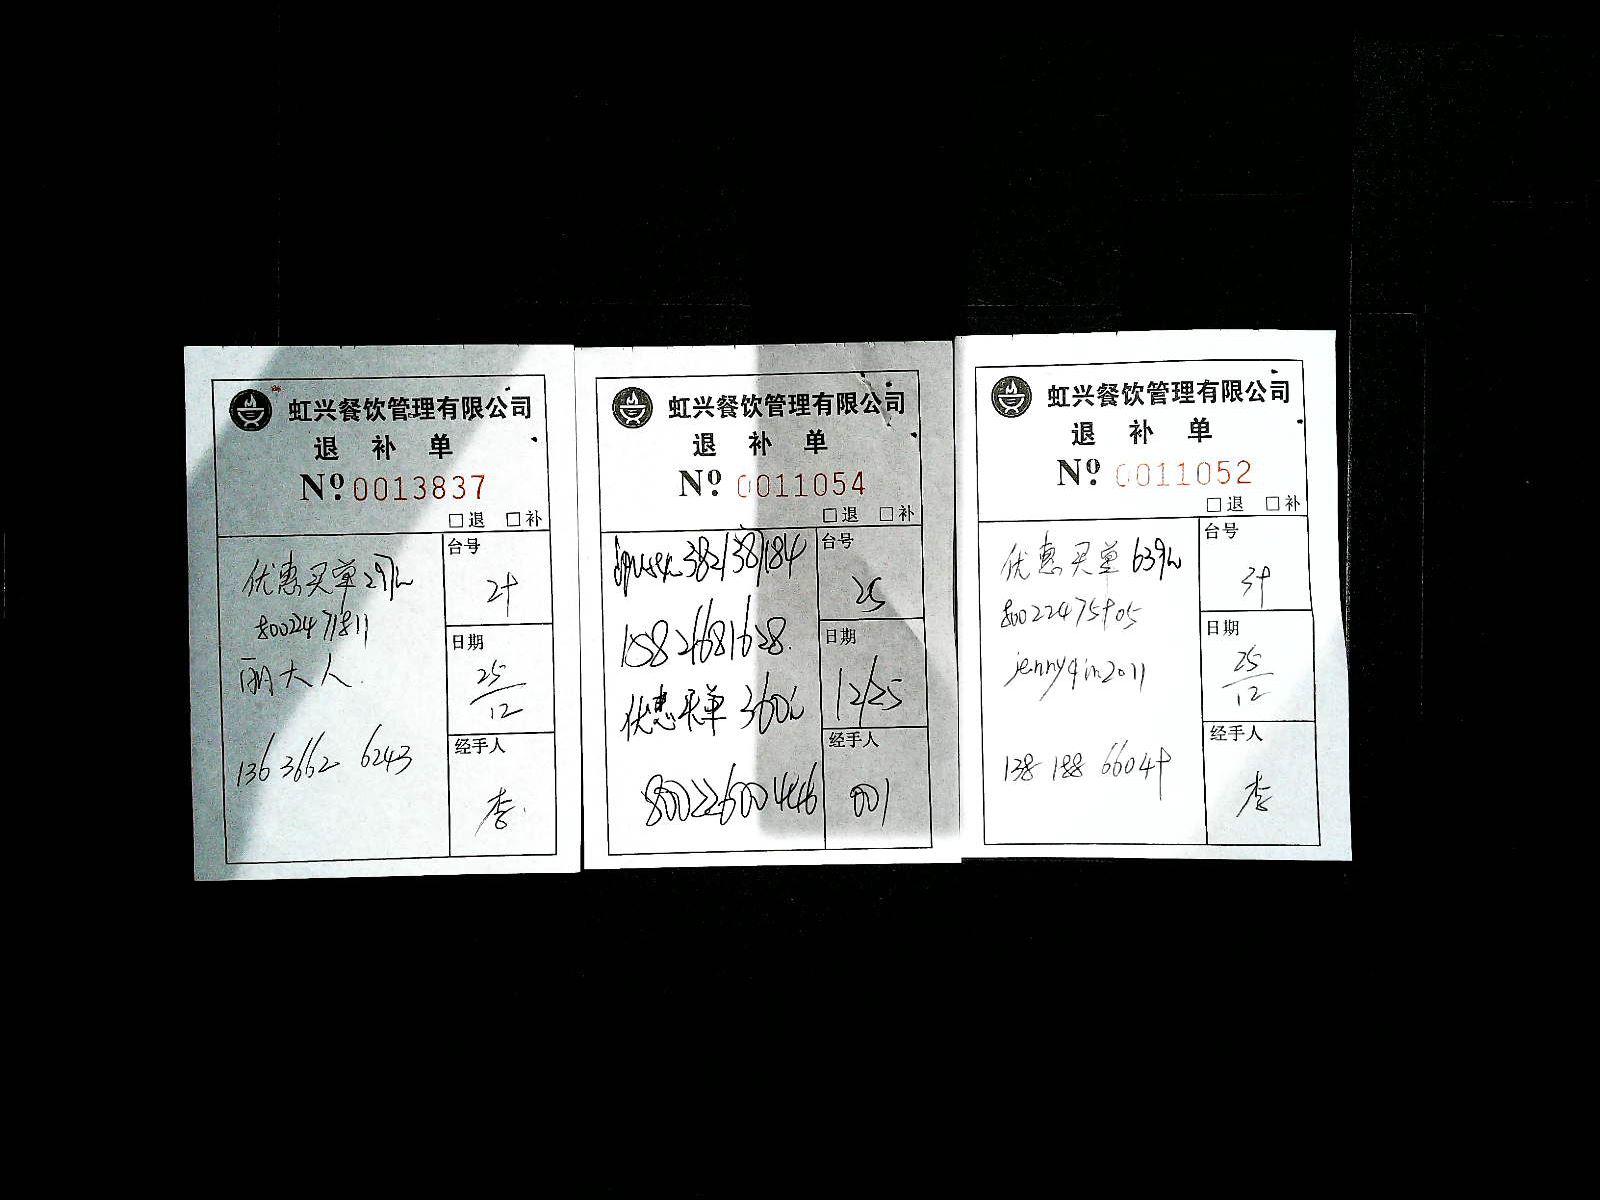 虹兴餐饮管理有限公司
退 补 单
Nº 0013837
□退 □补
优惠买单 297元
80022471811
丽大人
136 3662 6243
台号
日期
25/12
经手人
李
虹兴餐饮管理有限公司
退 补 单
Nº 0011054
□退 □补
382138184
15821681628
优惠买单 360元
800226004446
台号
25
日期
12/25
经手人
001
虹兴餐饮管理有限公司
退 补 单
Nº 0011052
□退 □补
优惠买单 639元
jennyqin2011
138 188
台号
日期
25/12
经手人
李